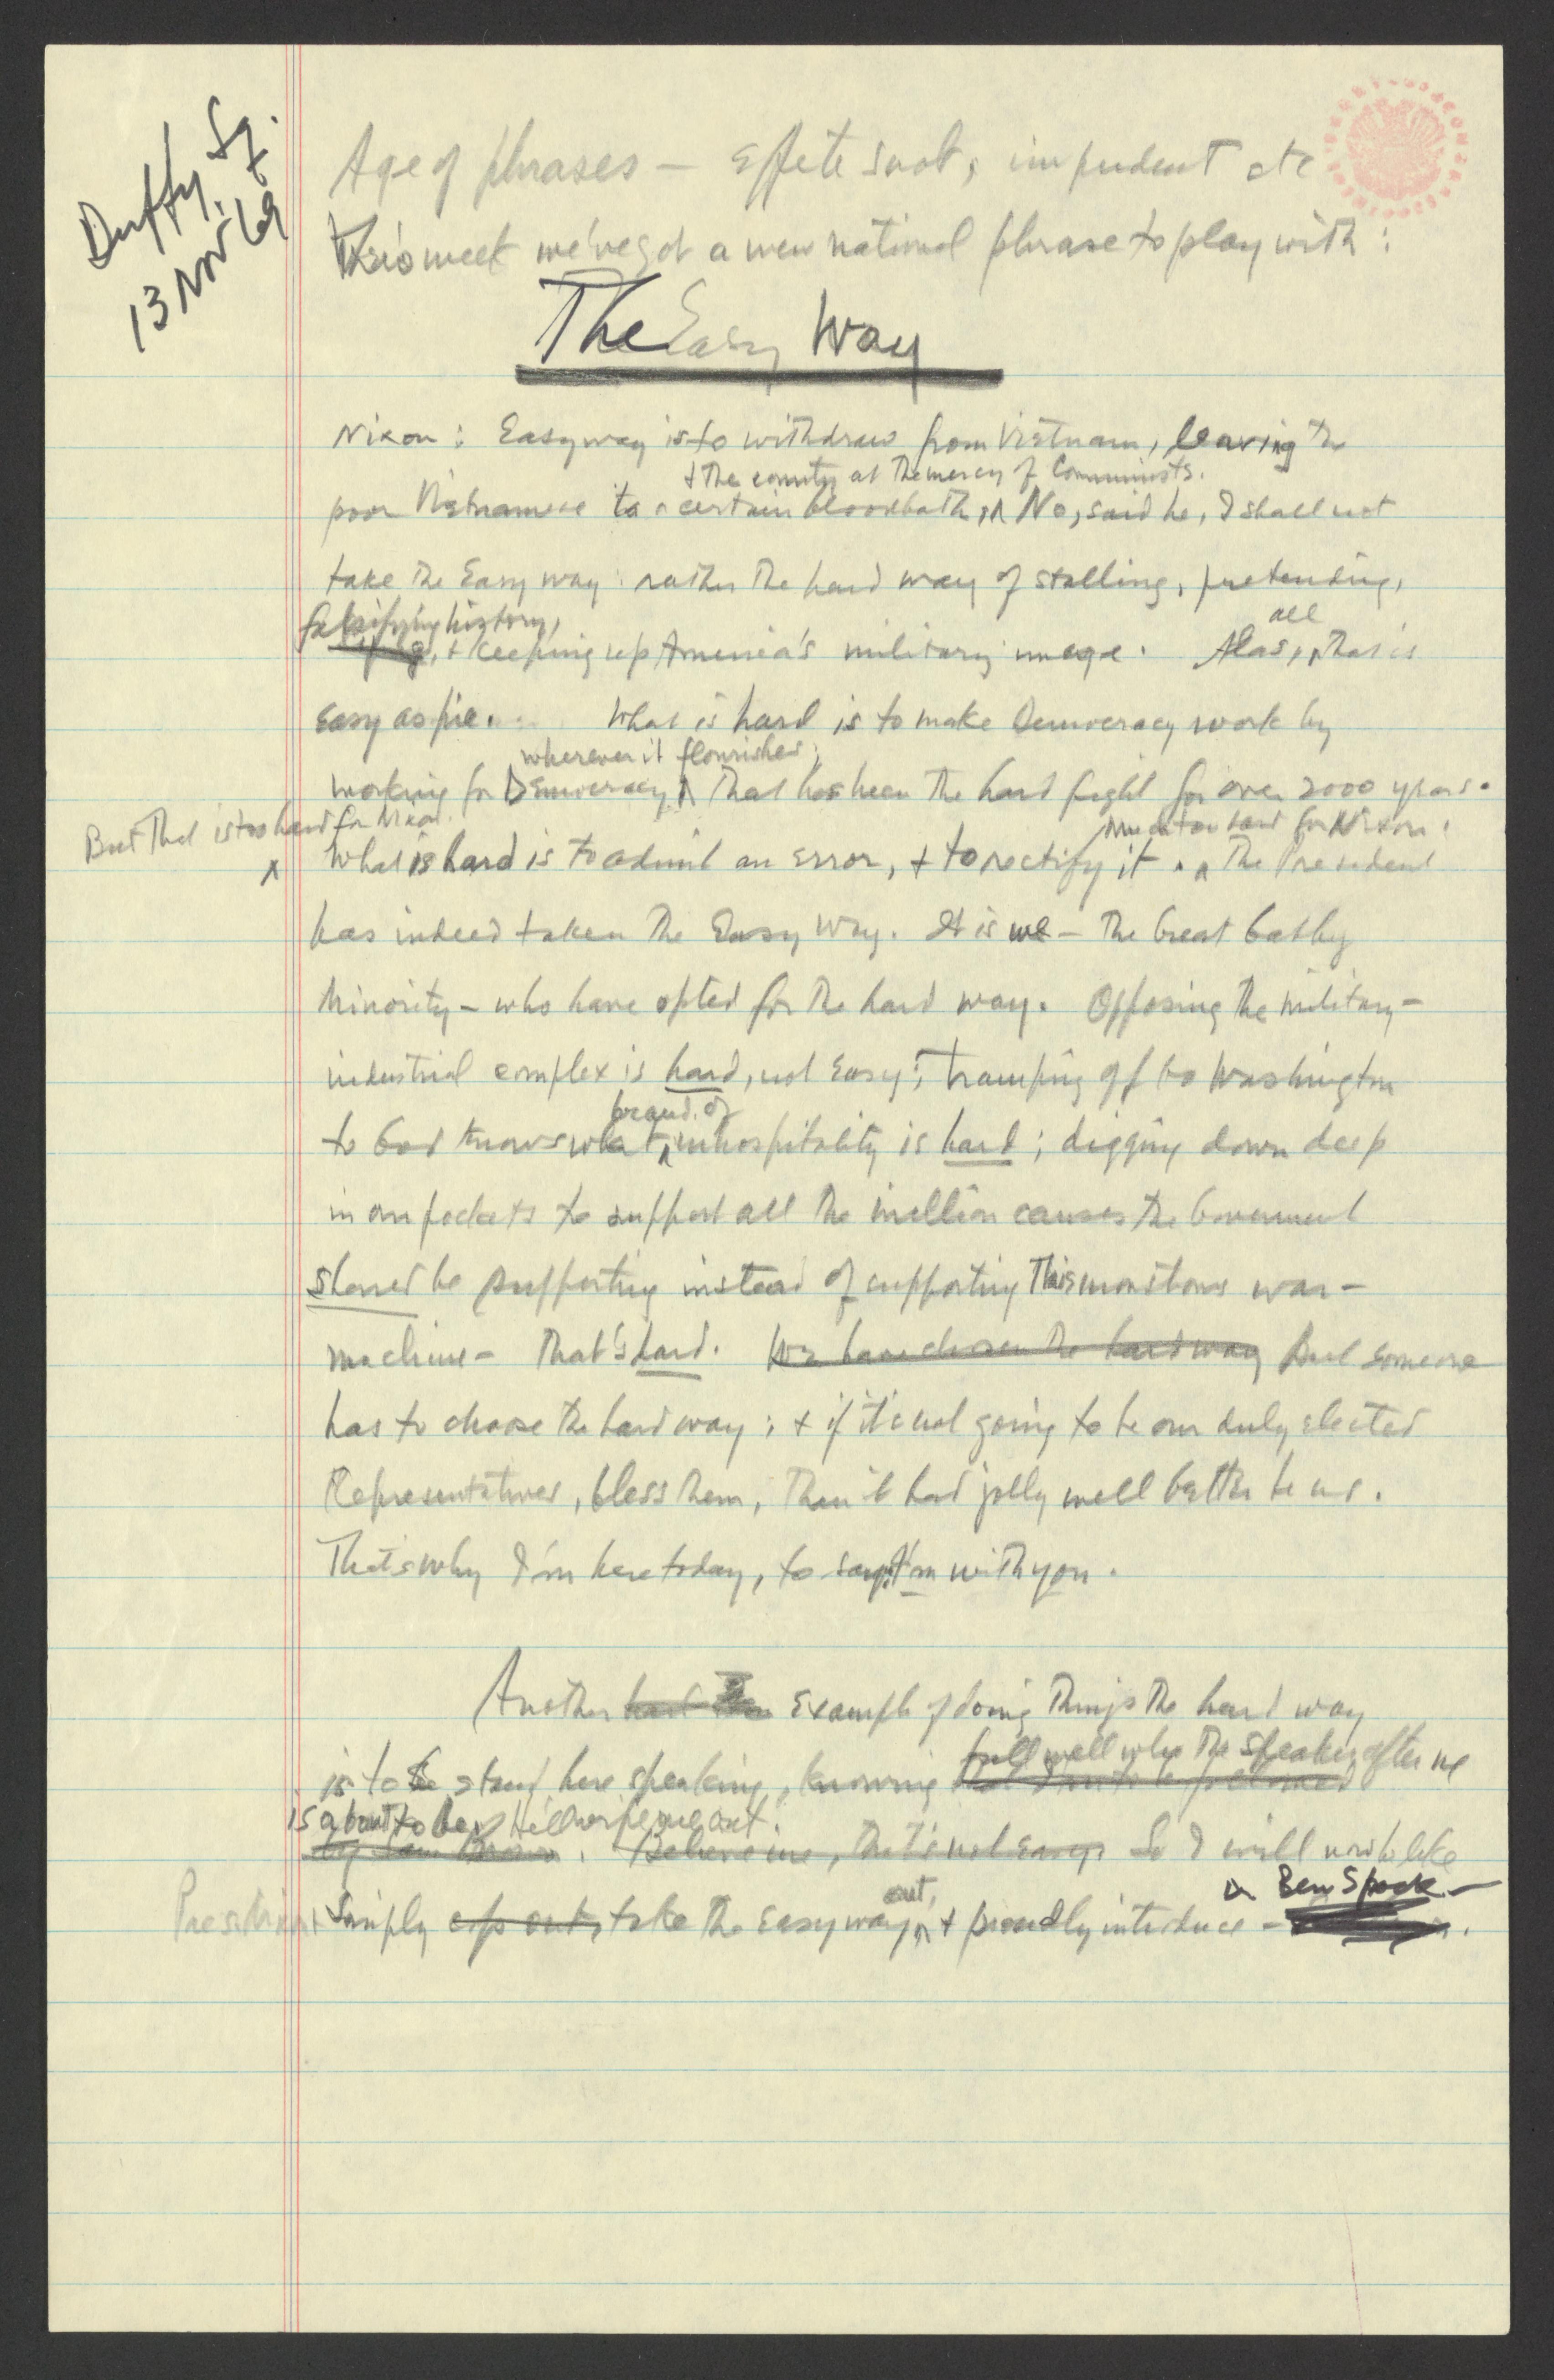 Duffy Sq.
13 Nov 69
Age of phrases — effete snob, impudent etc
This week we've got a new national phrase to play with:
The Easy Way
Nixon: Easy way is to withdraw from Vietnam, leaving the
+ the country at the mercy of Communists.
poor Vietnamese to a certain bloodbath, ∧ No, said he, I shall not
take the Easy way: rather the hard way of stalling, pretending,
falsifying history, all
, + keeping up America's military image. Alas, ∧ that is
easy as pie. What is hard is to make Democracy work by
wherever it flourishes;
working for Democracy ∧ That has been the hard fight for over 2000 years.
But that is too hard for Nixon. Much too hard for Nixon.
∧ What is hard is to admit an error, + to rectify it. ∧ The President
has indeed taken the Easy Way. It is we — the Great Gatsby
Minority — who have opted for the hard way. Opposing the military-
industrial complex is hard, not easy; tramping off to Washington
brand of
to God knows what ∧ inhospitality is hard; digging down deep
in our pockets to support all the million causes the Government
should be supporting instead of supporting this monstrous war-
machine — that's hard. We have chosen the hard way But someone
has to choose the hard way; + if it's not going to be our duly elected
Representatives, bless them, then it had jolly well better be us.
That's why I'm here today, to say I'm with you.
Another hard example of doing things the hard way
full well who the speaker after me
is to stand here speaking, knowing
is about to be, He'll wipe me out.
Believe me, that's not easy. So I will now be like
out, Ben Spock —
President Simply cop out, take the easy way ∧ + proudly introduce —